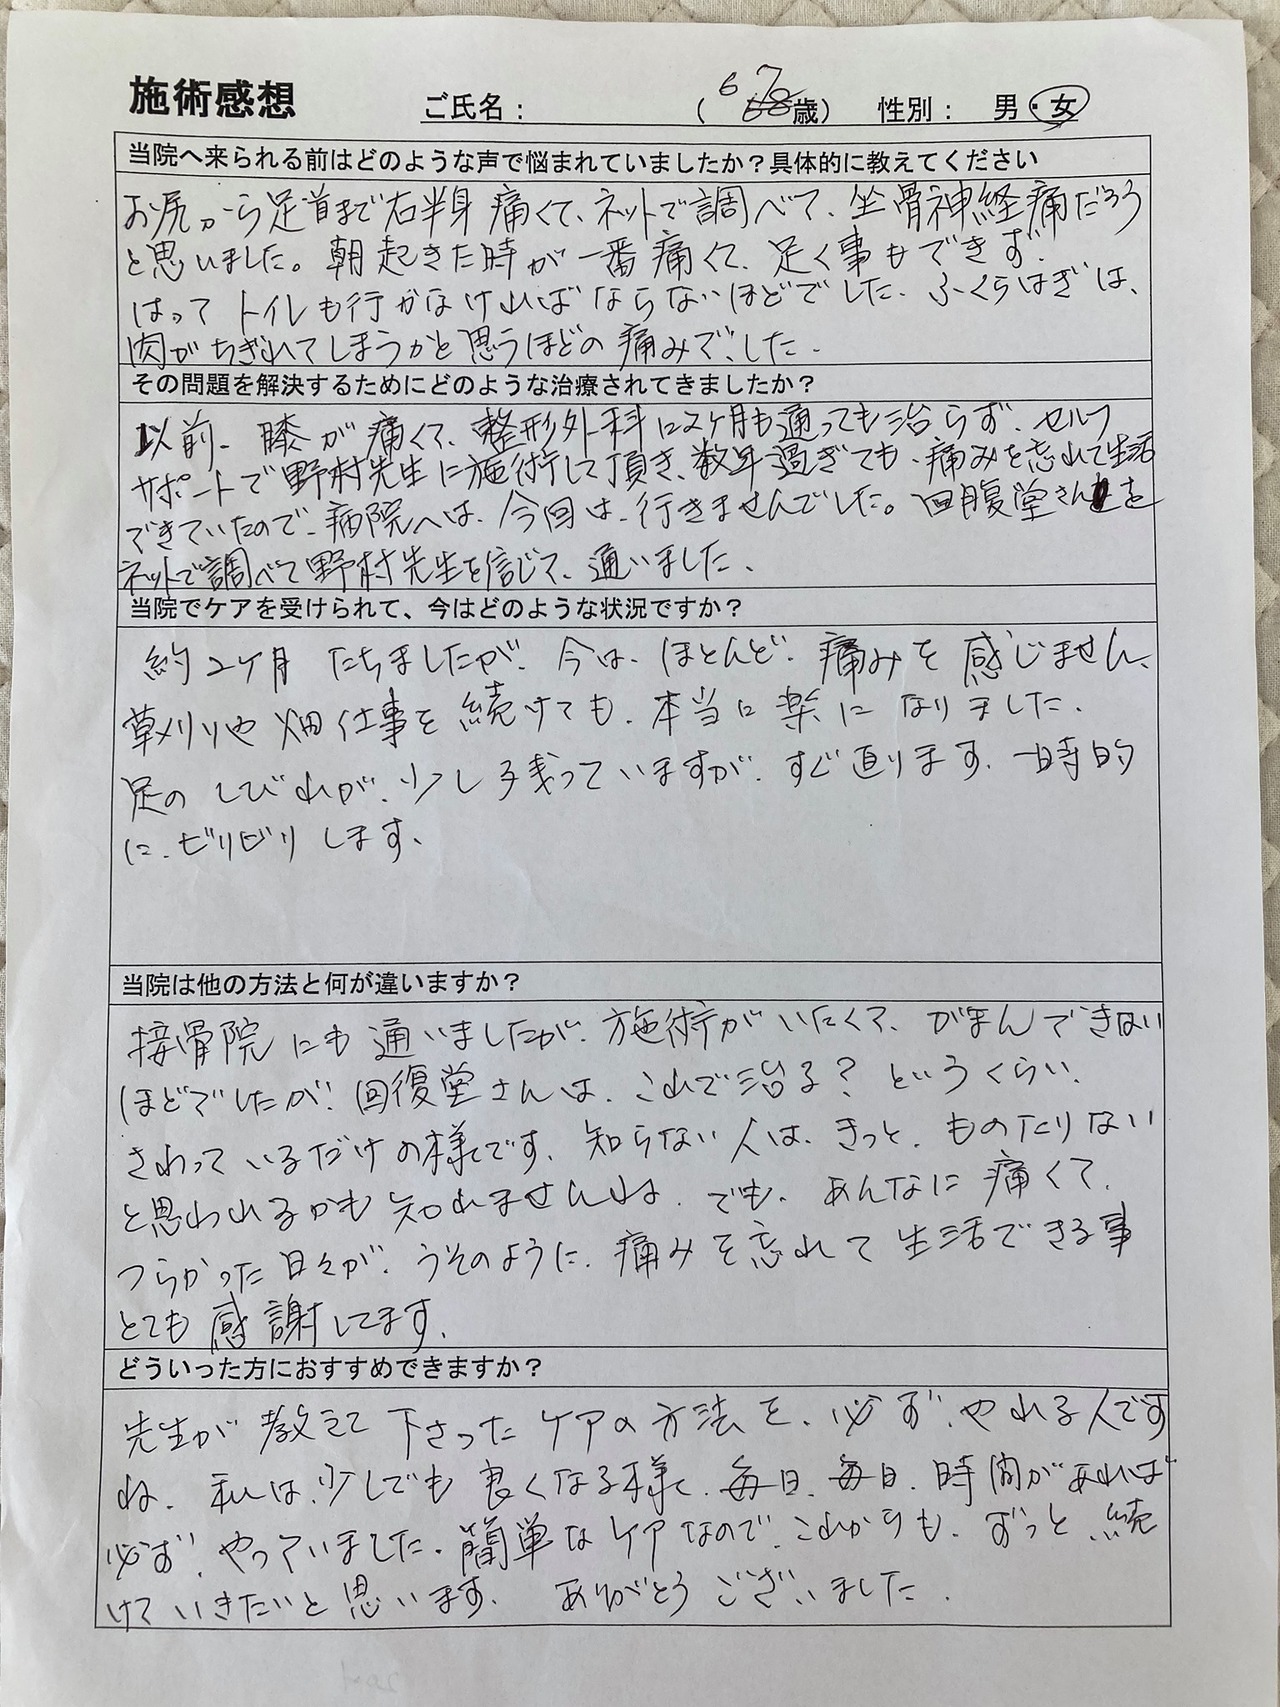 施術感想 ご氏名： （67歳） 性別： 男・女
当院へ来られる前はどのような声で悩まれていましたか？具体的に教えてください
お尻から足首まで右半身痛くて、ネットで調べて、坐骨神経痛だろう
と思いました。朝起きた時が一番痛くて、足く事もできず、
はって トイレも行かなければならないほどでした、ふくらはぎは、
肉がちぎれてしまうかと思うほどの痛みでした、
その問題を解決するためにどのような治療されてきましたか？
以前、膝が痛くて、整形外科に2ヶ月も通っても治らず、セルフ
サポートで野村先生に施術して頂き、数年過ぎても、痛みを忘れて生活
できていたので、病院へは、今回は、行きませんでした。回腹堂さんを
ネットで調べて野村先生を信じて、通いました、
当院でケアを受けられて、今はどのような状況ですか？
約2ヶ月 たちましたが、今は、ほとんど、痛みを感じません、
草刈りや畑仕事を続けても、本当に楽になりました、
足の しびれが、少し残っていますが、すぐ直ります、一時的
に、ビリビリします、
当院は他の方法と何が違いますか？
接骨院にも通いましたが、施術がいたくて、がまんできない
ほどでしたが、回復堂さんは、これで治る？というくらい、
さわっているだけの様です、知らない人は、きっと、ものたりない
と思われるかも知れませんね、でも、あんなに痛くて、
つらかった日々が、うそのように、痛みを忘れて生活できる事
とても感謝してます、
どういった方におすすめできますか？
先生が教えて下さったケアの方法を、必ず、やれる人です
ね、私は、少しでも良くなる様に、毎日、毎日、時間があれば
必ず、やっていました、簡単なケアなので、これからも、ずっと、続
けていきたいと思います、 ありがとうございました、